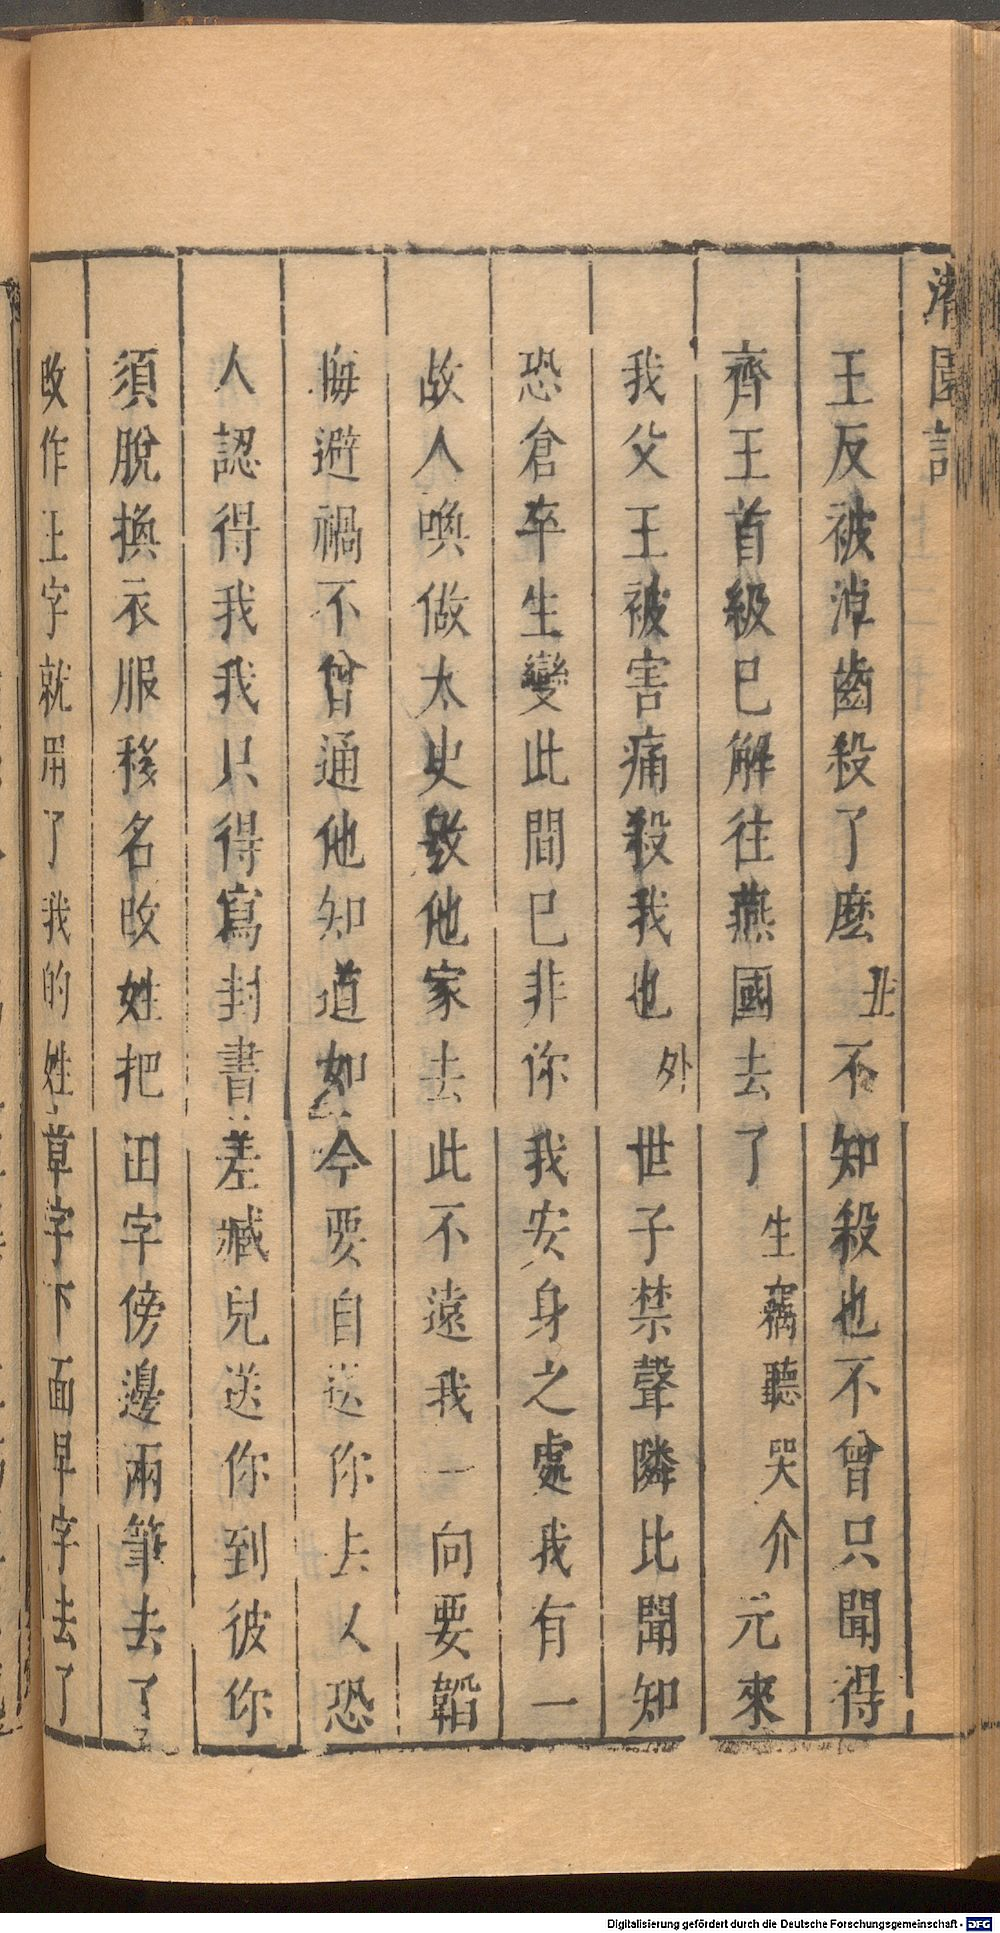 灌園記
王反被淖齒殺了麽丑不知殺也不曾只聞得
齊王首級已解往燕國去了生竊聽哭介元來
我父王被害痛殺我也外世子禁聲隣比聞知
恐倉卒生變此間已非你我安身之處我有一
故人喚做太史敫他家去此不遠我一向要韜
晦避禍不曾通他知道如今要自送你去又恐
人認得我我只得寫封書差臧兒送你到彼你
須脫換衣服移名改姓把田字傍邊兩筆去了
改作王字就用了我的姓草字下面早字去了
Digitalisierung gefördert durch die Deutsche Forschungsgemeinschaft - DFG